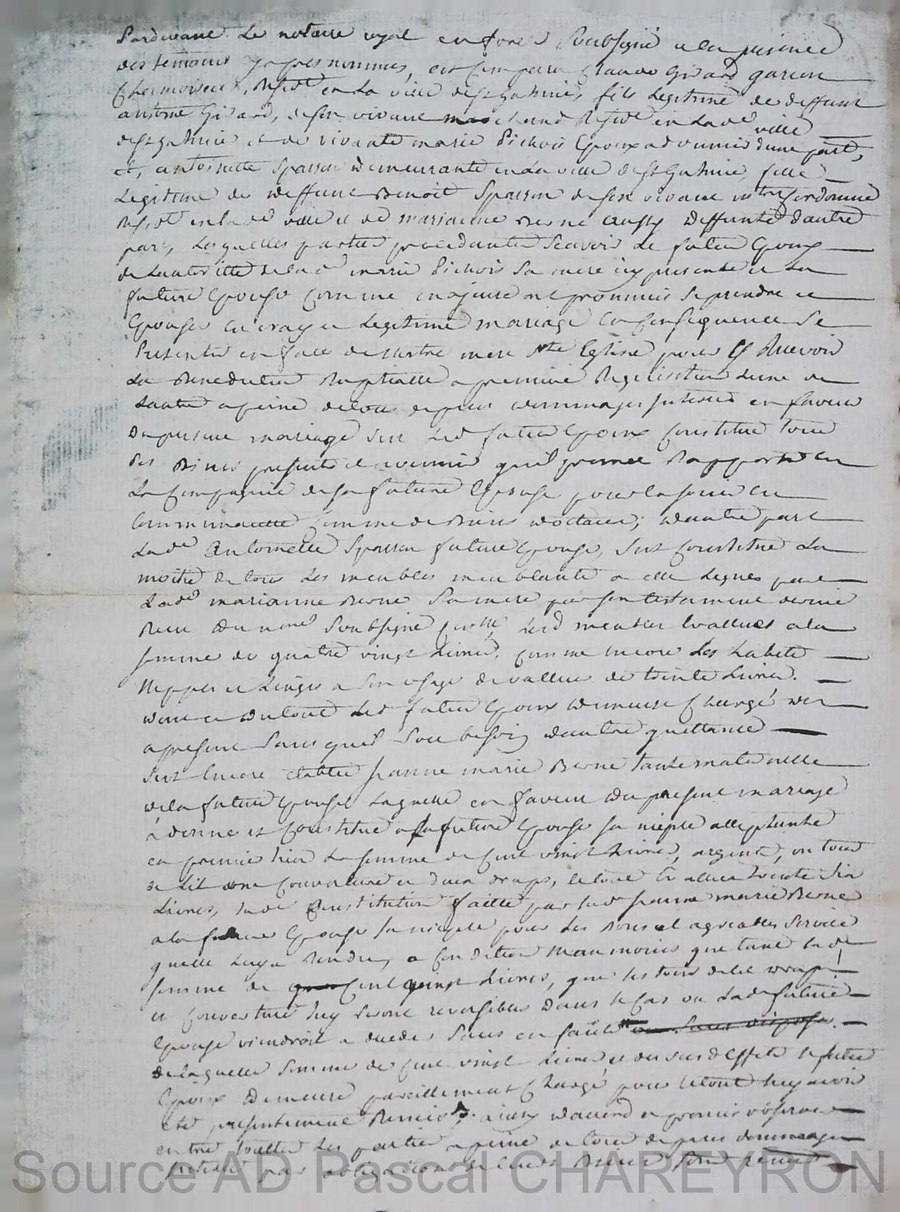 Pardevant Le notaire royal en forez soubsigné et en la presence
des temoins apres nommés, est comparu Claude Girard garcon
Chamoiseur, Residt en La ville de st galmier, fils Legitime de deffunt
antoine Girard, de son vivant marchand Residt en Lade ville
de st galmier et de vivante marie Pichois Epoux advenir d'une part,
et, antoinette Sparron demeurante en La ville de st galmier fille
Legitime de deffunt Benoit Sparron de son vivant cordonnier
Residt en lade ville et de marianne Berne aussy deffunte d'autre
part, Lesquelles parties procedantes scavoir Le futur Epoux
de L'autorité de lade marie Pichois sa mere icy presente et La
future Epouse comme majeure ont promis se prendre et
Epouser en vray et Legitime mariage en consequence se
Presenter en face de notre mere ste Eglise pour y Recevoir
La Benediction Nuptialle a premiere Requisition L'une de
L'autre a peine de tous depens dommages interets en faveur
du present mariage sest Led futur Epoux constitué tous
ses Biens presents et avenir qu'il promet Rapporter en
La Compagnie de sa future Epouse pour la
Communauté comme de Biens ; d'autre part
Lade antoinette Sparron future Epouse, sest constitué La
moitié de tous Les meubles meublants a elle Legués par
Lade marianne Berne sa mere par son testament dernier
Receu Du nore soubsigné Lesd meubles Evallués a la
somme de quatre vingt Livres, comme encore Les habits
Nippes et Linges a son usage de valleur de trente Livres.
dont et du tout Led futur Epoux demeure Chargé des
apresent sans quil soit besoin d'autre quittance
sest encore établie jeanne marie Berne tante maternelle
de la future Epouse Laquelle en faveur Du present mariage
a donné et constitué a la future Epouse sa niepce acceptante
en premier Lieu La somme de cent vingt Livres, argent, un tour
de Lit une couverture et deux draps, le tout Evallué trente six
Livres, Lade Constitution faitte par lade jeanne marie Berne
a la future Epouse sa niepce pour Les Bons et agreables services
quelle Luy a Rendus, a condition neanmoins que tant lade
somme de cent vingt Livres, que les tour de lit draps
et couverture luy seront reversibles Dans le cas ou Lade future
Epouse viendroit a deceder sans enfants ou sans disposer.
de laquelle somme de cent vingt Livres et dessusd Effets le futur
Epoux Demeure pareillement Chargé pour le tout luy avoir
été presentement Remis. ainsy d'accord et promis observer
entre touttes Les parties a peine de tous depens dommages
interets par obligations de leurs Biens
Source AD Pascal CHAREYRON